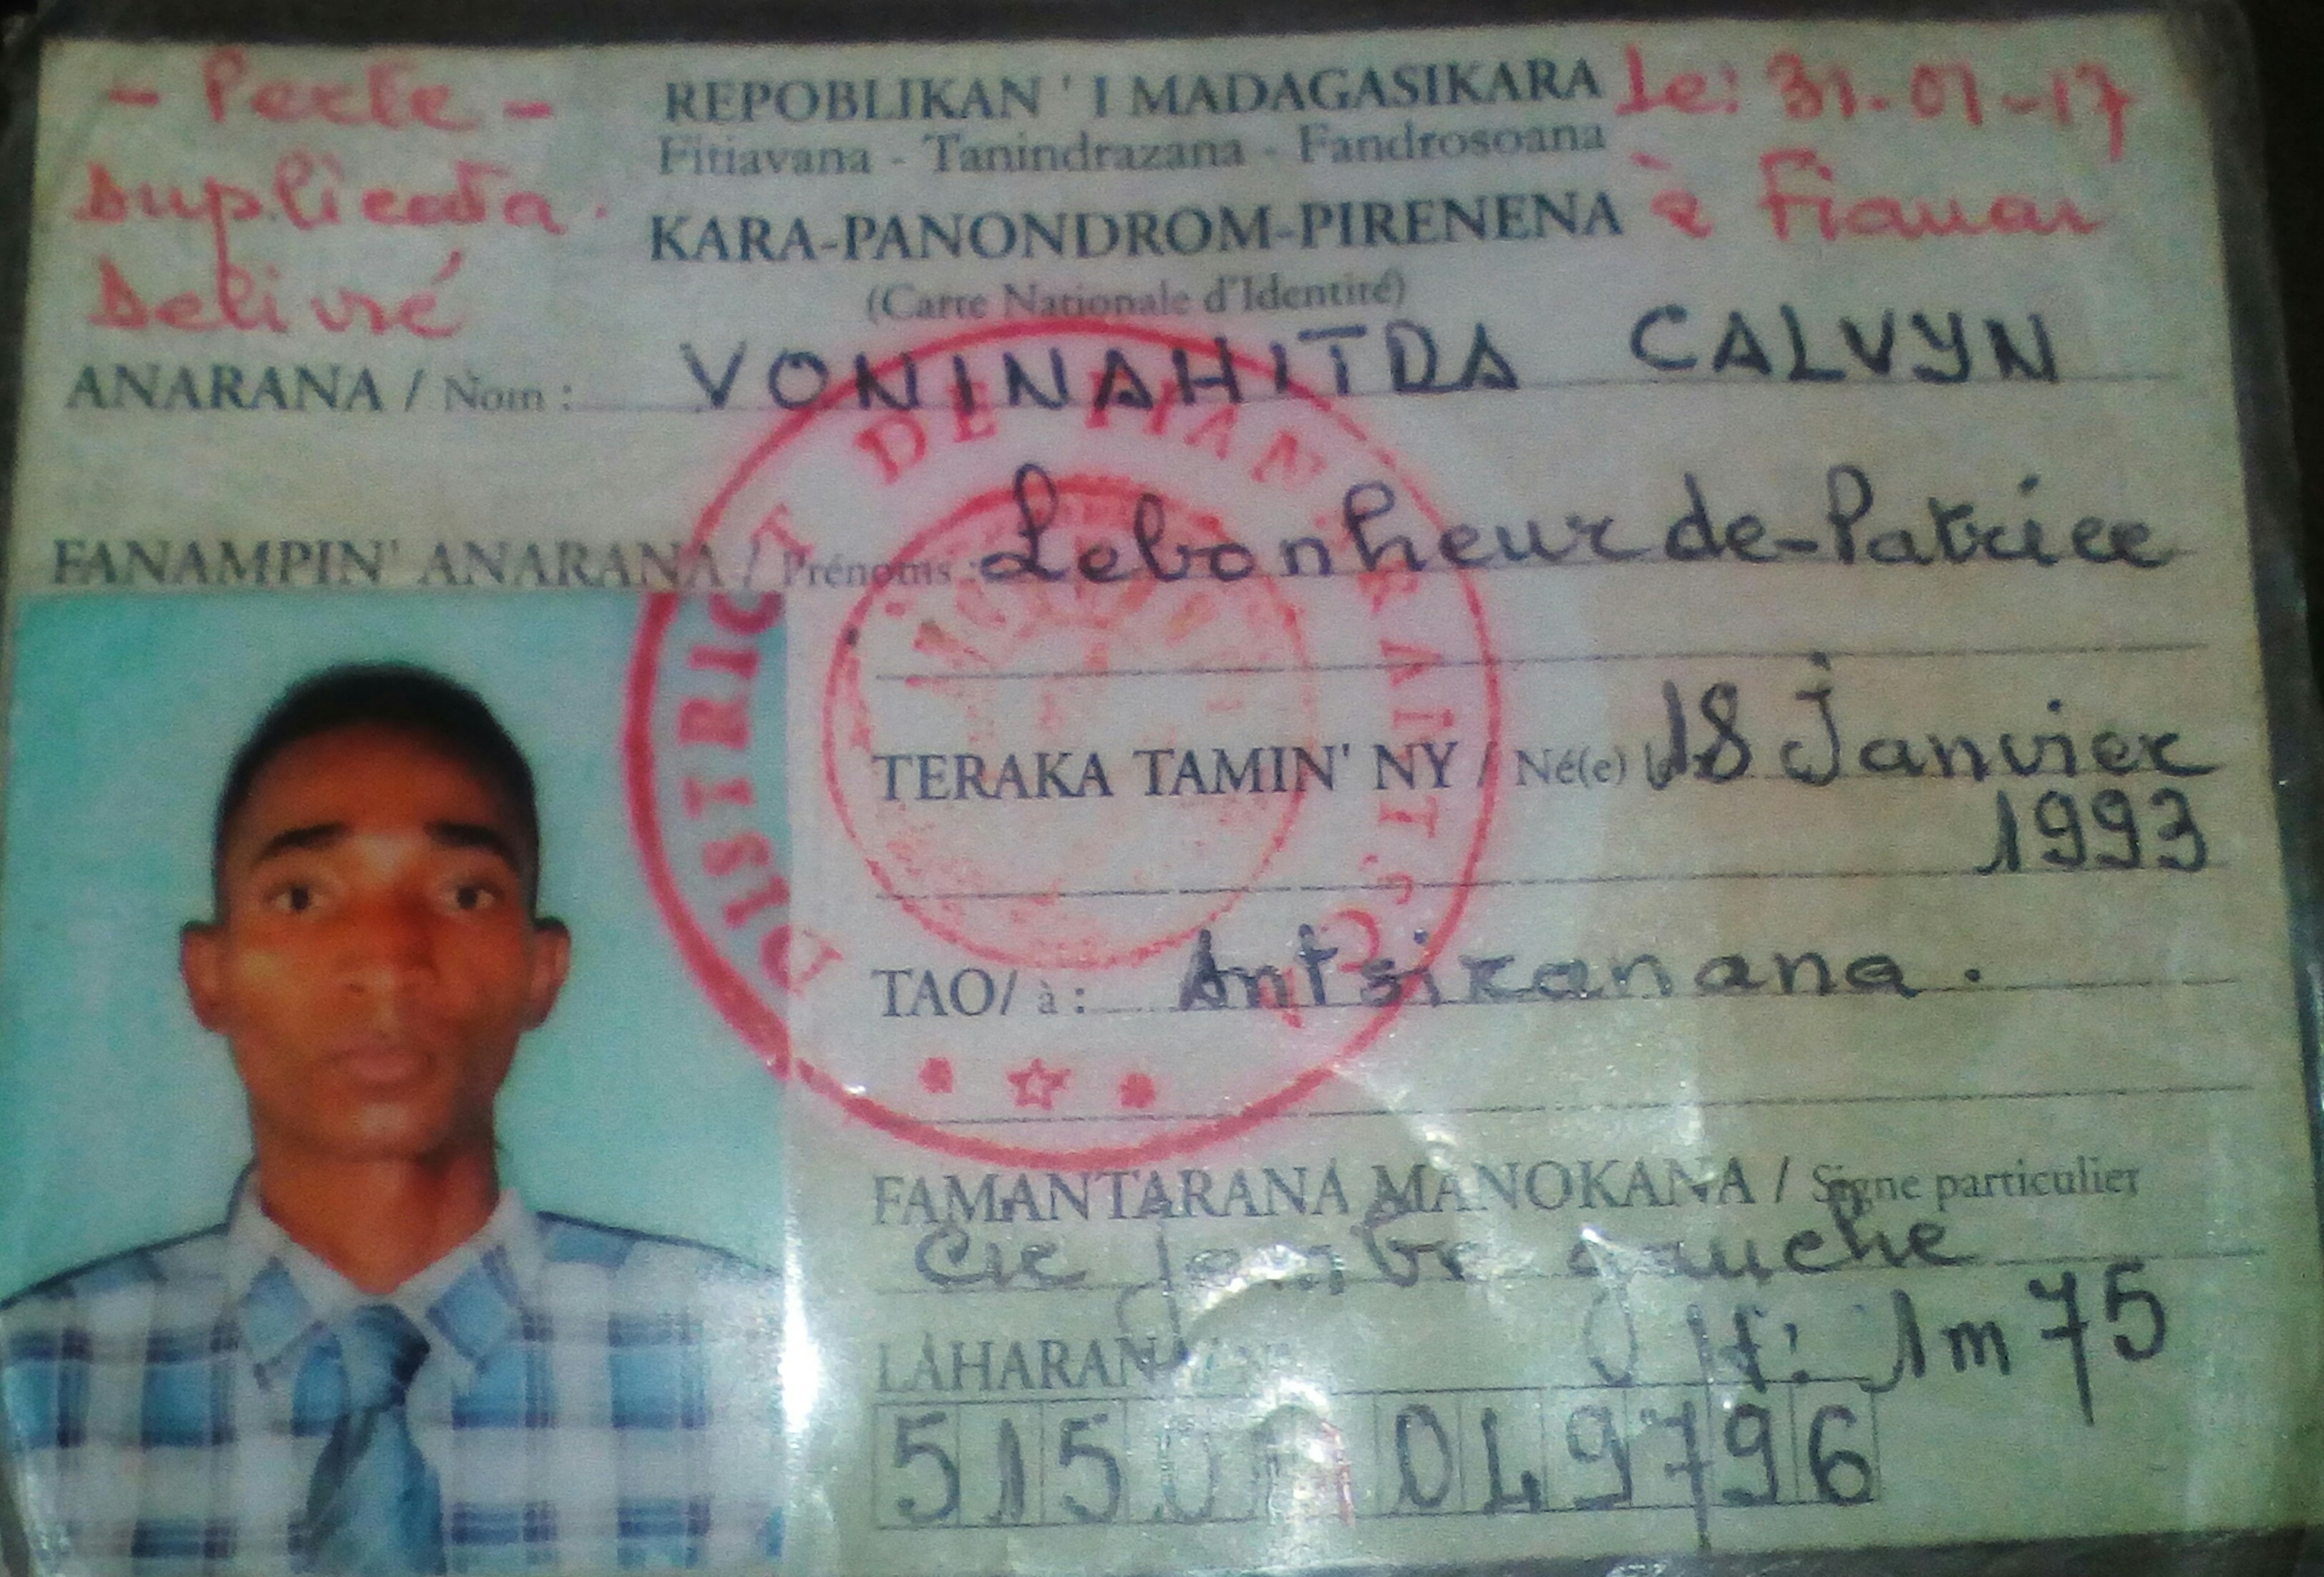 - Perte -
Duplicata.
Delivré
REPOBLIKAN ' I MADAGASIKARA
Fitiavana - Tanindrazana - Fandrosoana
KARA-PANONDROM-PIRENENA
(Carte Nationale d'Identité)
Le: 31-01-17
à Fianar
ANARANA / Nom : VONINAHITRA CALVYN
FANAMPIN' ANARANA / Prénoms : Lebonheur de-Patrice
TERAKA TAMIN' NY / Né(e) 18 Janvier
1993
TAO/ à : Antsiranana.
FAMANTARANA MANOKANA / Signe particulier
Cic jambe gauche
LAHARANA
H: 1m75
DISTRICT DE